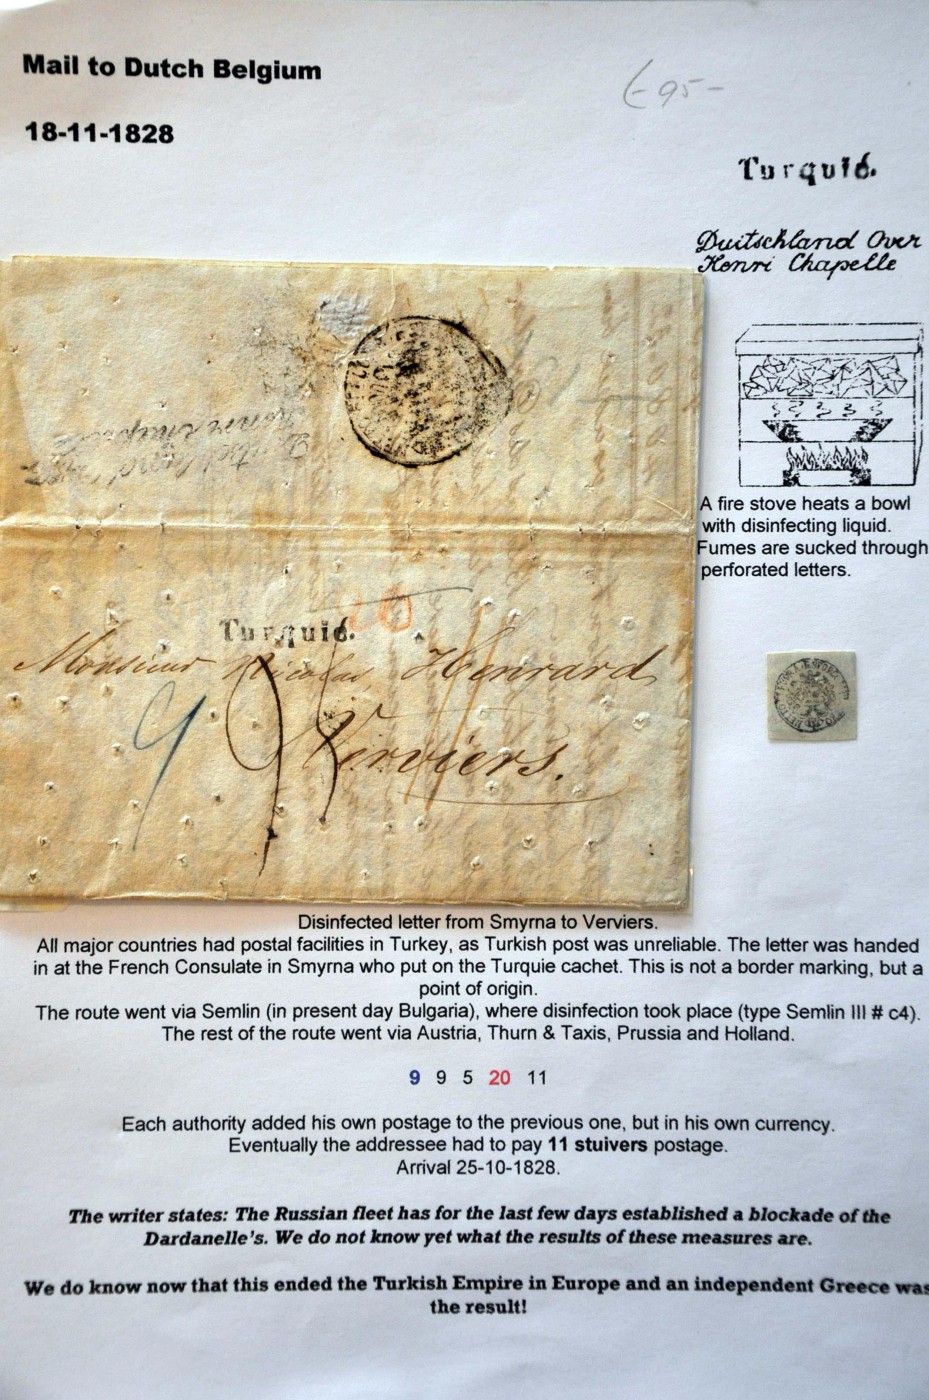 Mail to Dutch Belgium
€ 95-
18-11-1828
Turquié.
Duitschland Over
Henri Chapelle
A fire stove heats a bowl
with disinfecting liquid.
Fumes are sucked through
perforated letters.
20
Turquié.
Monsieur Nicolas Henrard
9
Verviers.
Disinfected letter from Smyrna to Verviers.
All major countries had postal facilities in Turkey, as Turkish post was unreliable. The letter was handed
in at the French Consulate in Smyrna who put on the Turquie cachet. This is not a border marking, but a
point of origin.
The route went via Semlin (in present day Bulgaria), where disinfection took place (type Semlin III # c4).
The rest of the route went via Austria, Thurn & Taxis, Prussia and Holland.
9 9 5 20 11
Each authority added his own postage to the previous one, but in his own currency.
Eventually the addressee had to pay 11 stuivers postage.
Arrival 25-10-1828.
The writer states: The Russian fleet has for the last few days established a blockade of the
Dardanelle's. We do not know yet what the results of these measures are.
We do know now that this ended the Turkish Empire in Europe and an independent Greece was
the result!